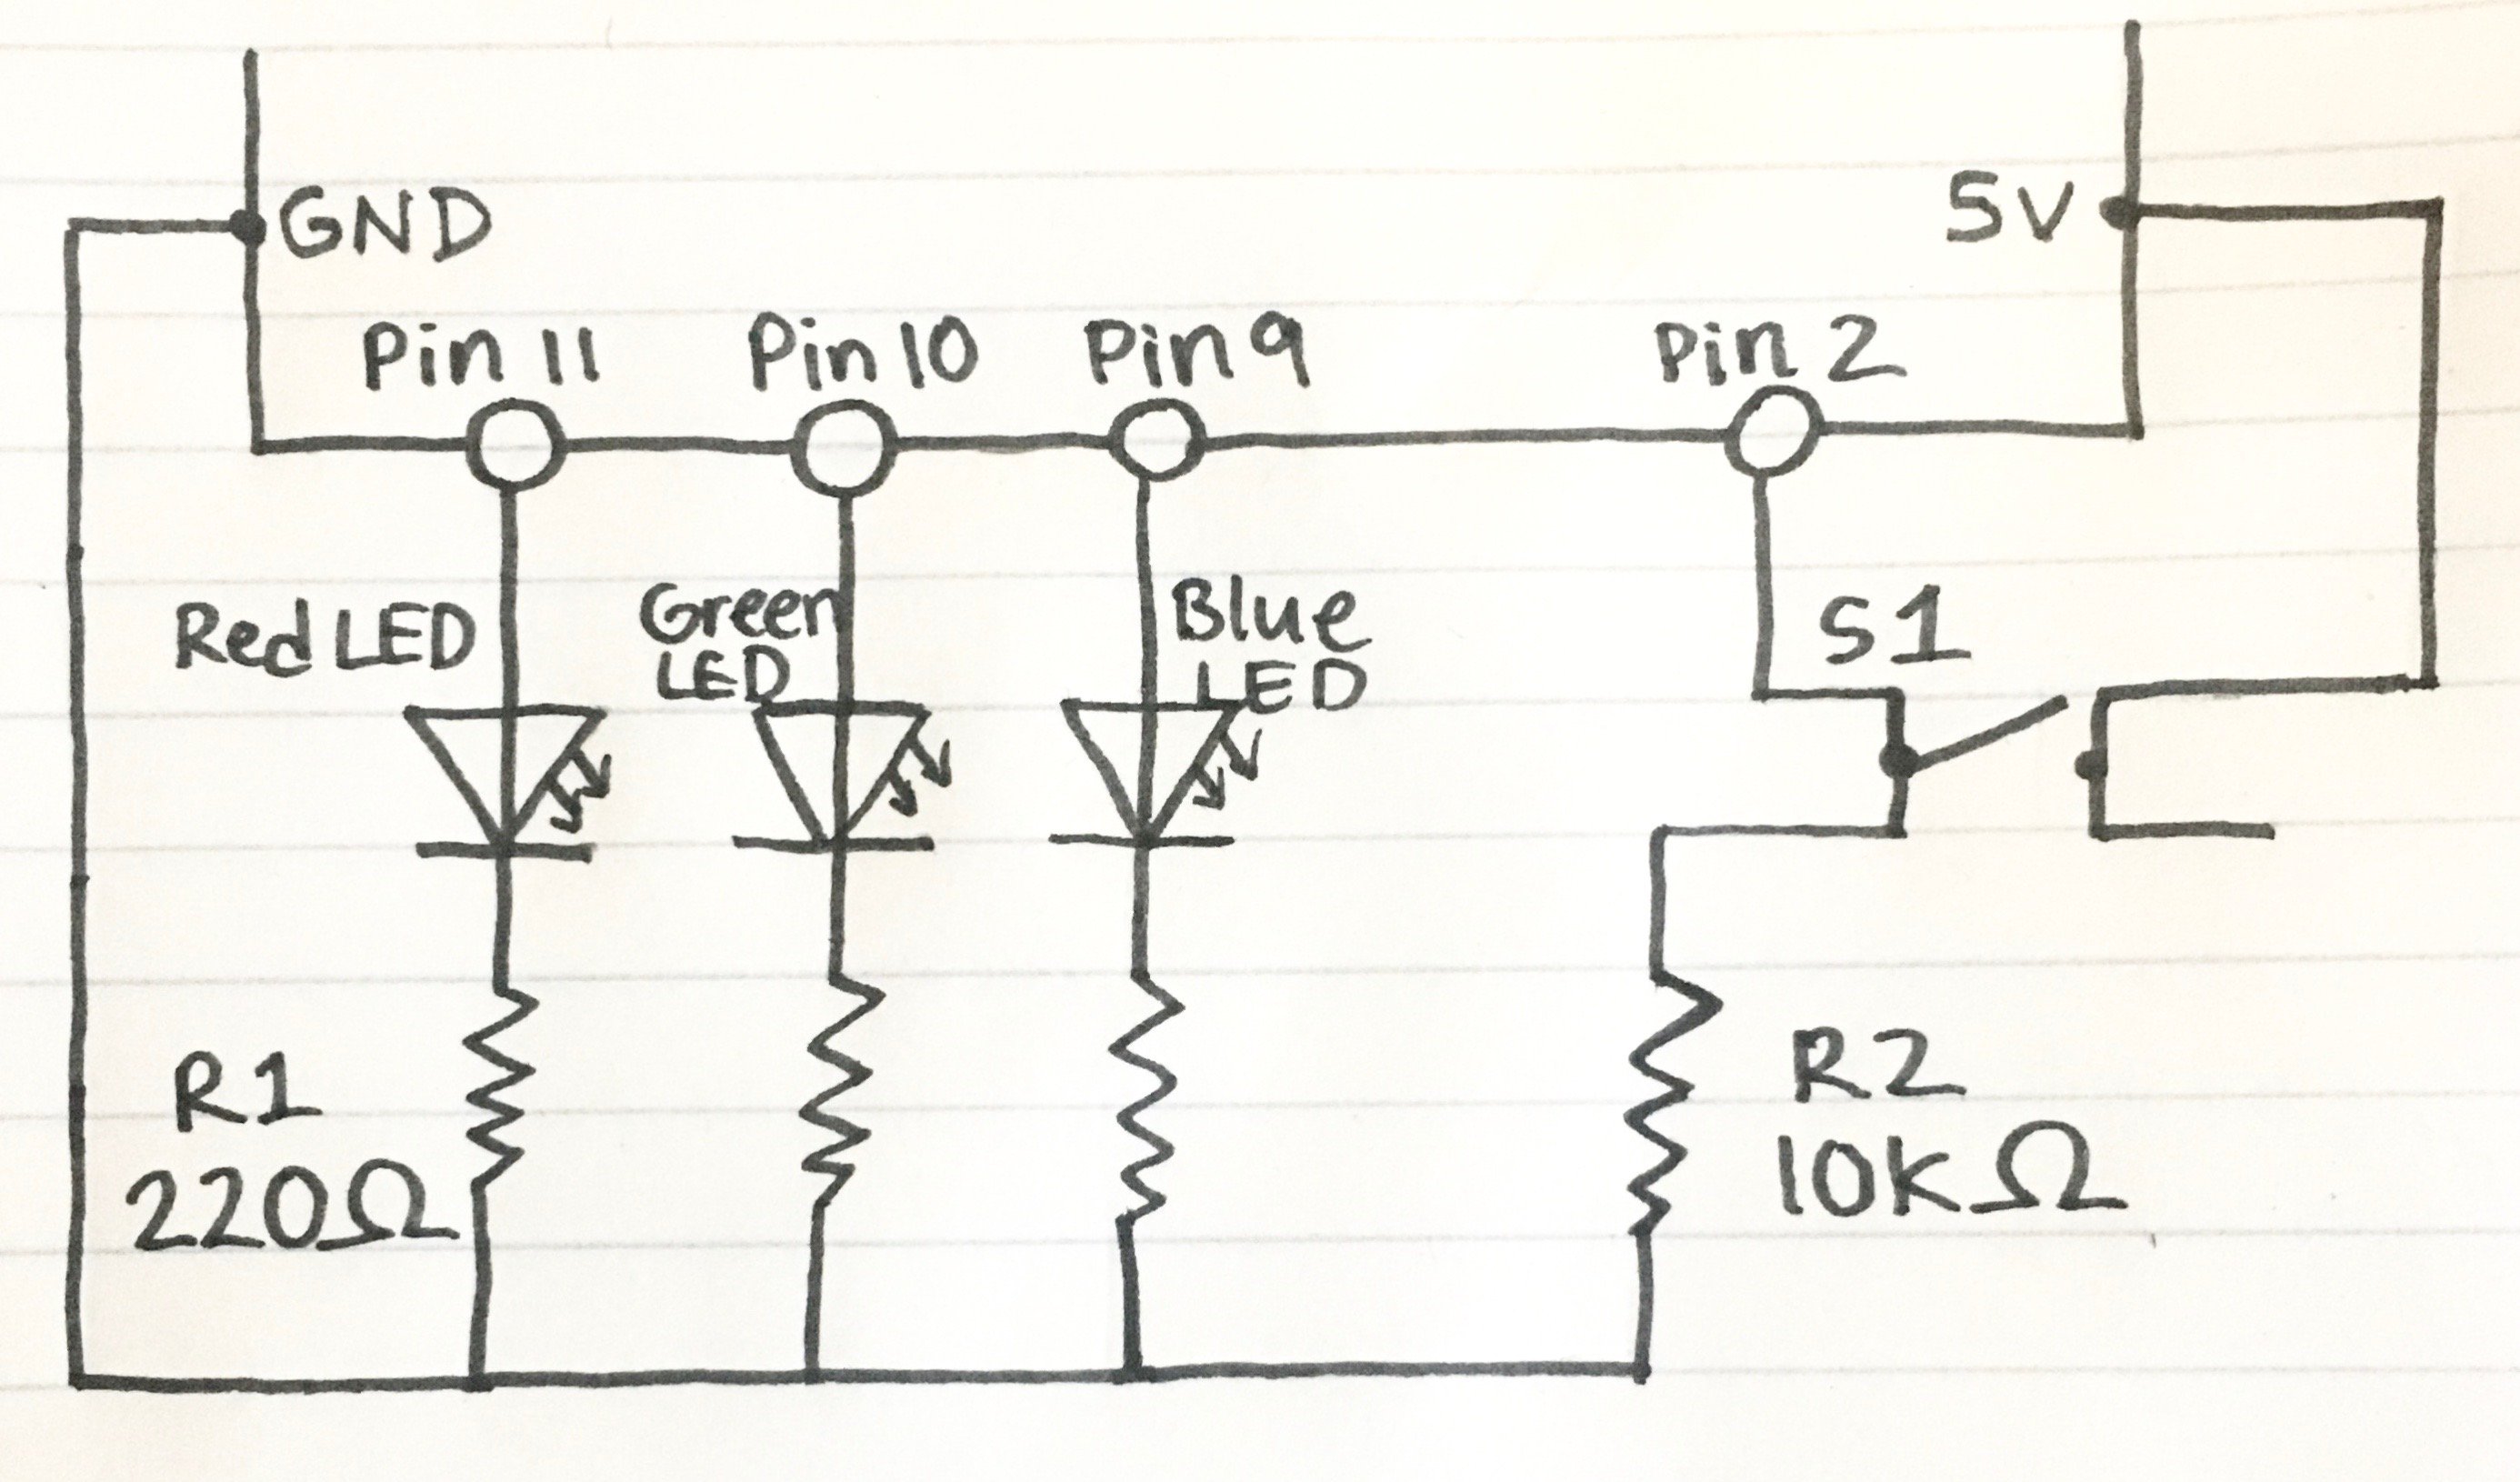 GND
5V
Pin 11
Pin 10
Pin 9
Pin 2
Red LED
Green
LED
Blue
LED
S1
R1
220Ω
R2
10KΩ